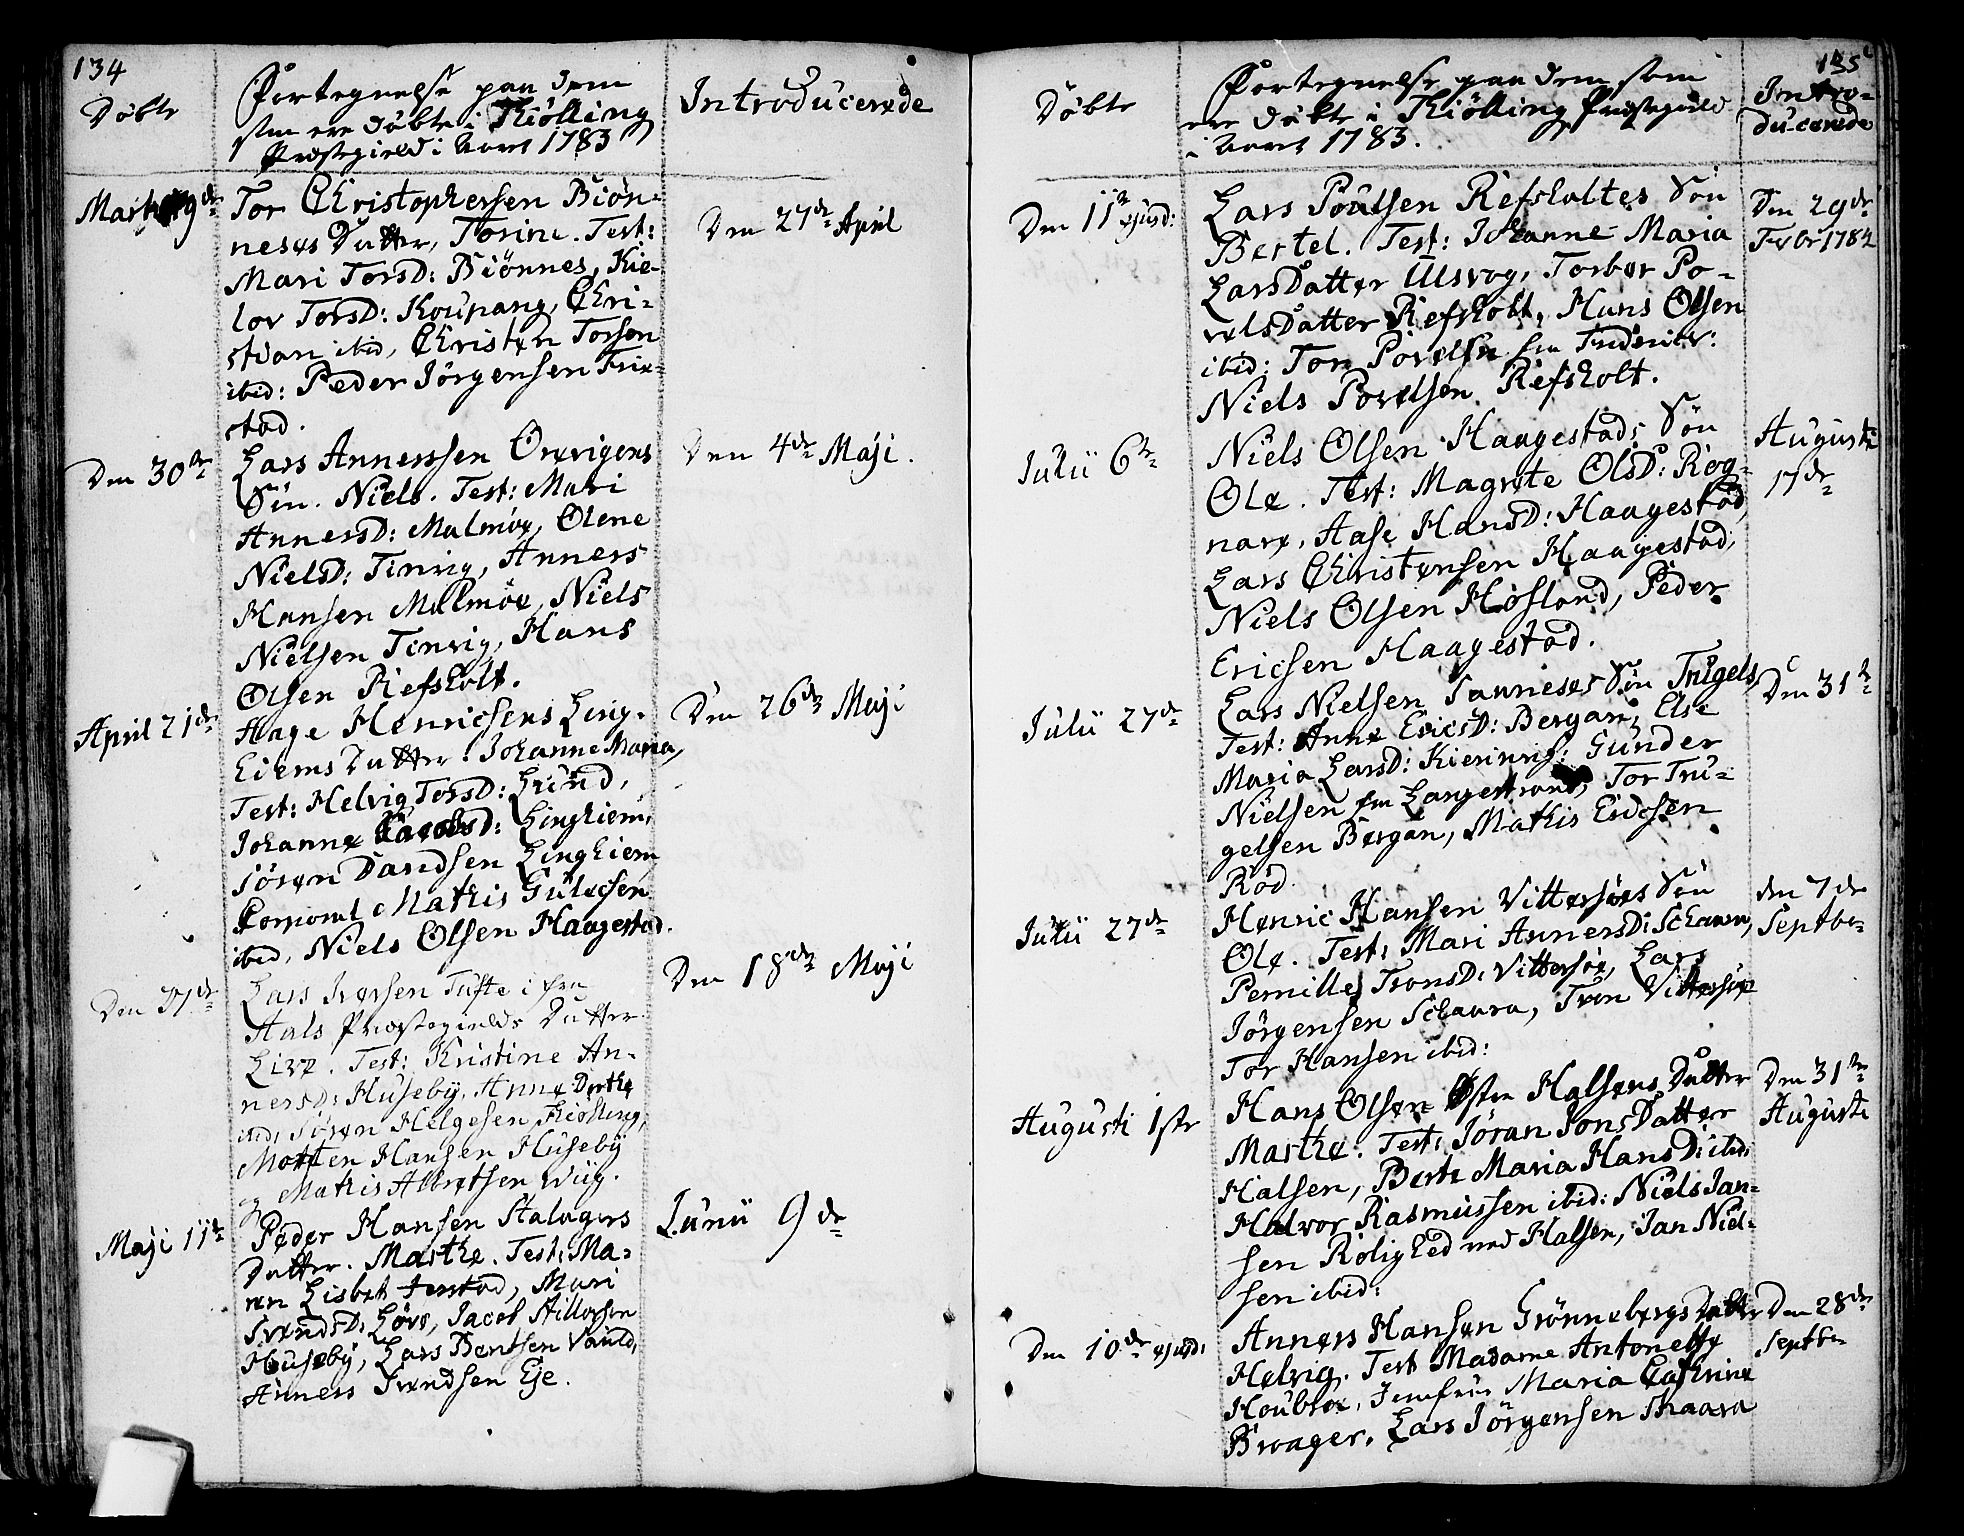 134
Döbte
Fortegnelse paa dem
som ere döbte i Kiölling
Præstegield i Aaret 1783
Introducerede
9de
Tor Christophersen Biön-
neses Datter, Torine. Test:
Mari Torsd: Biönnes, Kie-
lov Torsd: Koupang, Chri-
stian ibid, Christen Torsen
ibid: Peder Jörgensen Trix-
stad.
Den 27de April
Den 30te
Lars Annerssen Orevigens
Sön. Niels. Test: Mari
Annersd: Malmöe, Olene
Nielsd: Tinvig, Anners
Hansen Malmöe, Niels
Nielsen Tinvig, Hans
Olsen Refsholt.
Den 4de Maji.
April 21de
Aage Henricsens Ling-
Eiems Datter. Johanne Maria,
Test: Helvig Torsd: Lund,
Johanne Jacobsd: Linghiem,
Sören Davidsen Linghiem
Corporal Mathis Gulicsen
ibid, Niels Olsen Haagestad.
Den 26de Maji
Den 27de
Lars Iversen Tufte i fra
Hals Præstegields Datter
Live. Test: Kristine An-
nersd: Huseby, Anne Dorthe
ibid, Sören Helgesen Kiölling,
Motten Hansen Huseby
og Mathis Albretsen Wiig.
Den 18de Maji
Maji 11te
Peder Hansen Stalagers
Datter. Marthe. Test: Ma-
ren Lisbet Jerstad, Mari
Svendsd: Göve, Jacob Hillorsen
Huseby, Lars Bentsen Vauld,
Anners Svendsen Eje.
Junii 9de
135
Döbte
Fortegnelse paa dem som
ere döbte i Kiölling Præstegield
i Aaret 1783.
Intro-
ducerede
Den 11te ejusd:
Lars Poulsen Refsholtes Sön
Bertel. Test: Johanne Maria
Larsdatter Ulsvog, Torbor Po-
velsdatter Refsholt, Hans Olsen
ibid: Tor Povelsen fra Fridericv:
Niels Povelsen Refsholt.
Den 29de
Febr 1784
Julii 6te
Niels Olsen Haagestads Sön
Ole. Test: Magrete Olsd: Rog-
nare, Aase Hansd: Haagestad,
Lars Christensen Haagestad,
Niels Olsen Hösland, Peder
Ericsen Haagestad.
Augusti
17de
Julii 27de
Lars Nielsen Sannieses Sön Trugels,
Test: Anne Ericsd: Bergan, Else
Maria Larsd: Kierinris: Gunder
Nielsen fra Langestrand, Tor Tru-
gelsen Bergan, Mathis Ericsen
Röd.
Den 31te
Julii 27de
Henric Hansen Vittersöes Sön
Ole. Test: Mari Annersd: Schaura,
Pernille Tronsd: Vittersöe, Lars
Jörgensen Schaura, Tron Vittersöe
Tor Hansen ibid:
den 7de
Septbr
Augusti 1ste
Hans Olsen Østre Halsens Datter
Marthe. Test: Jöran Jonsdatter
Halsen, Berte Maria Hansd: ibid:
Halvor Rasmussen ibid: Niels Jan-
sen Roligheed ved Halsen, Jan Niel-
sen ibid:
Den 31te
Augusti
Den 10de ejusd:
Anners Hansen Grönnebergs Datter
Helvig. Test Madame Antonette
Houbroe, Jomfrue Maria Cathrine
Brvager, Lars Jörgensen Skaara
Den 28de
Septbr